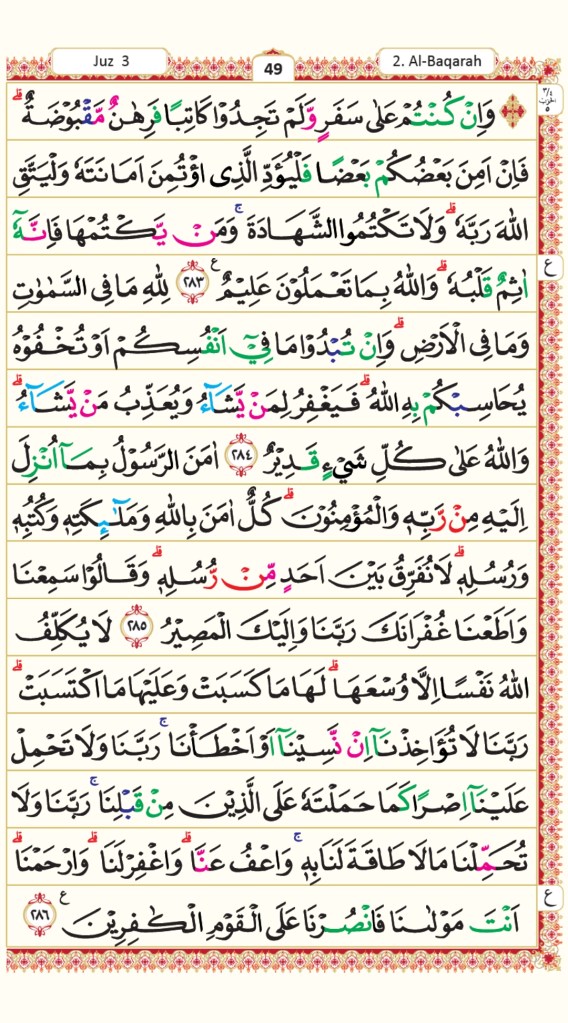 Juz 3
49
2. Al-Baqarah
وَاِنْ كُنْتُمْ عَلٰى سَفَرٍ وَّلَمْ تَجِدُوْا كَاتِبًا فَرِهٰنٌ مَّقْبُوْضَةٌ ؕ
فَاِنْ اَمِنَ بَعْضُكُمْ بَعْضًا فَلْيُؤَدِّ الَّذِى اؤْتُمِنَ اَمَانَتَهٗ وَلْيَتَّقِ
اللّٰهَ رَبَّهٗ ؕ وَلَا تَكْتُمُوا الشَّهَادَةَ ؕ وَمَنْ يَّكْتُمْهَا فَاِنَّهٗۤ
اٰثِمٌ قَلْبُهٗ ؕ وَاللّٰهُ بِمَا تَعْمَلُوْنَ عَلِيْمٌ ﴿۲۸۳﴾ لِلّٰهِ مَا فِى السَّمٰوٰتِ
وَمَا فِى الْاَرْضِ ؕ وَاِنْ تُبْدُوْا مَا فِىْۤ اَنْفُسِكُمْ اَوْ تُخْفُوْهُ
يُحَاسِبْكُمْ بِهِ اللّٰهُ ؕ فَيَغْفِرُ لِمَنْ يَّشَآءُ وَيُعَذِّبُ مَنْ يَّشَآءُ ؕ
وَاللّٰهُ عَلٰى كُلِّ شَىْءٍ قَدِيْرٌ ﴿۲۸٤﴾ اٰمَنَ الرَّسُوْلُ بِمَاۤ اُنْزِلَ
اِلَيْهِ مِنْ رَّبِّهٖ وَالْمُؤْمِنُوْنَ ؕ كُلٌّ اٰمَنَ بِاللّٰهِ وَمَلٰٓئِكَتِهٖ وَكُتُبِهٖ
وَرُسُلِهٖ ؕ لَا نُفَرِّقُ بَيْنَ اَحَدٍ مِّنْ رُّسُلِهٖ ؕ وَقَالُوْا سَمِعْنَا
وَاَطَعْنَا غُفْرَانَكَ رَبَّنَا وَاِلَيْكَ الْمَصِيْرُ ﴿۲۸۵﴾ لَا يُكَلِّفُ
اللّٰهُ نَفْسًا اِلَّا وُسْعَهَا ؕ لَهَا مَا كَسَبَتْ وَعَلَيْهَا مَا اكْتَسَبَتْ ؕ
رَبَّنَا لَا تُؤَاخِذْنَاۤ اِنْ نَّسِيْنَاۤ اَوْ اَخْطَاْنَا ۚ رَبَّنَا وَلَا تَحْمِلْ
عَلَيْنَاۤ اِصْرًا كَمَا حَمَلْتَهٗ عَلَى الَّذِيْنَ مِنْ قَبْلِنَا ۚ رَبَّنَا وَلَا
تُحَمِّلْنَا مَا لَا طَاقَةَ لَنَا بِهٖ ۚ وَاعْفُ عَنَّا ؕ وَاغْفِرْ لَنَا ؕ وَارْحَمْنَا ؕ
اَنْتَ مَوْلٰىنَا فَانْصُرْنَا عَلَى الْقَوْمِ الْكٰفِرِيْنَ ﴿۲۸٦﴾
ع
ع